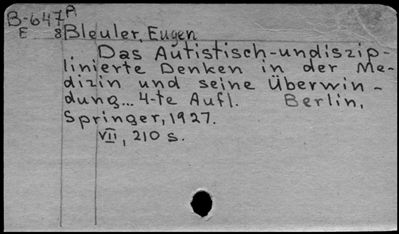 B-647 A
E 8 Bleuler, Eugen
Das Autistisch-undiszip-
linierte Denken in der Me-
dizin und seine Überwin-
dung... 4-te Aufl. Berlin,
Springer, 1927.
VII, 210 s.